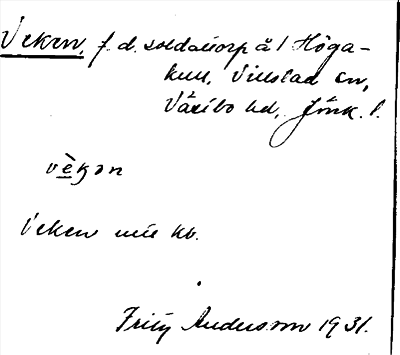 Veken, f. d. soldattorp å 1 Höga-
kull, Villstad sn,
Västbo hd, Jönk. l.
vèkən
Veken utt. kb.
Fritz Andersson 1931.